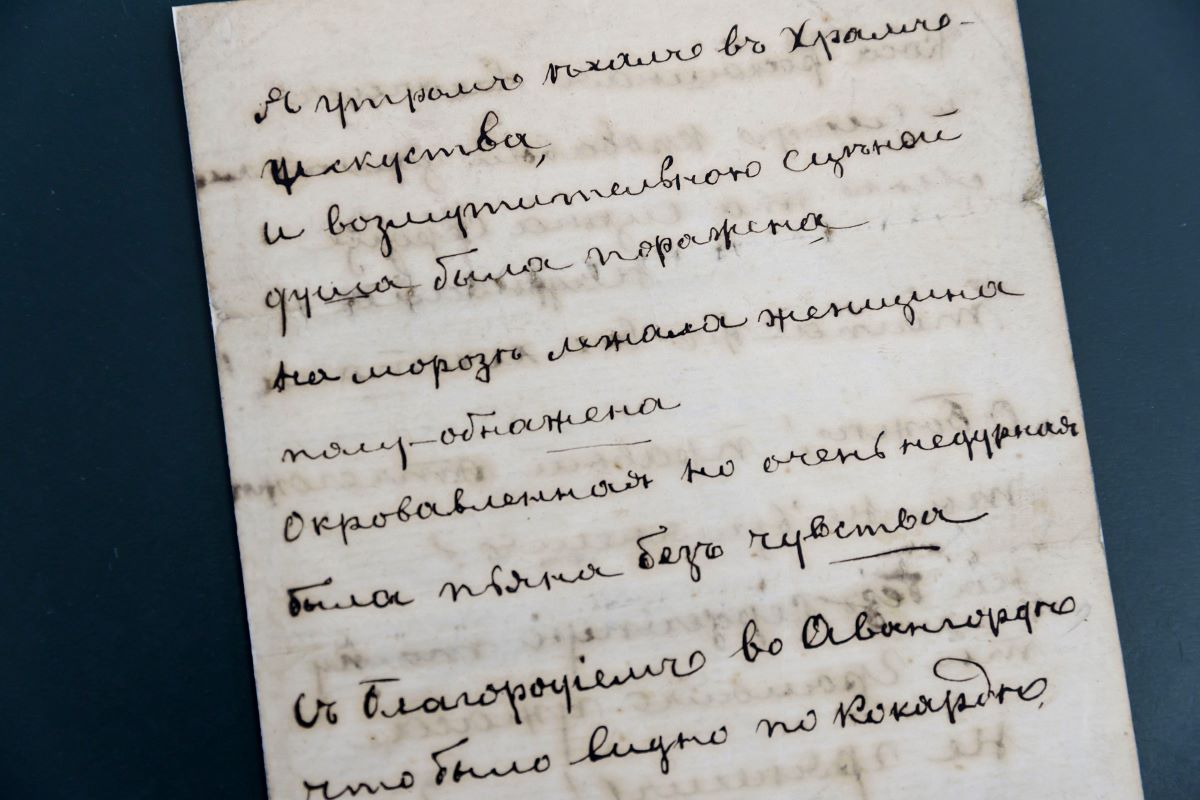 Я утромъ ѣхалъ въ Храмъ
искуства,
и возмутительною сцѣной
душа была поражена
на морозѣ ляжала женщина
полу-обнажена
Окровавленная но очень недурная
была пьяна безъ чувства
Съ благородіемъ во Авангордѣ
что было видно по Кокардѣ,